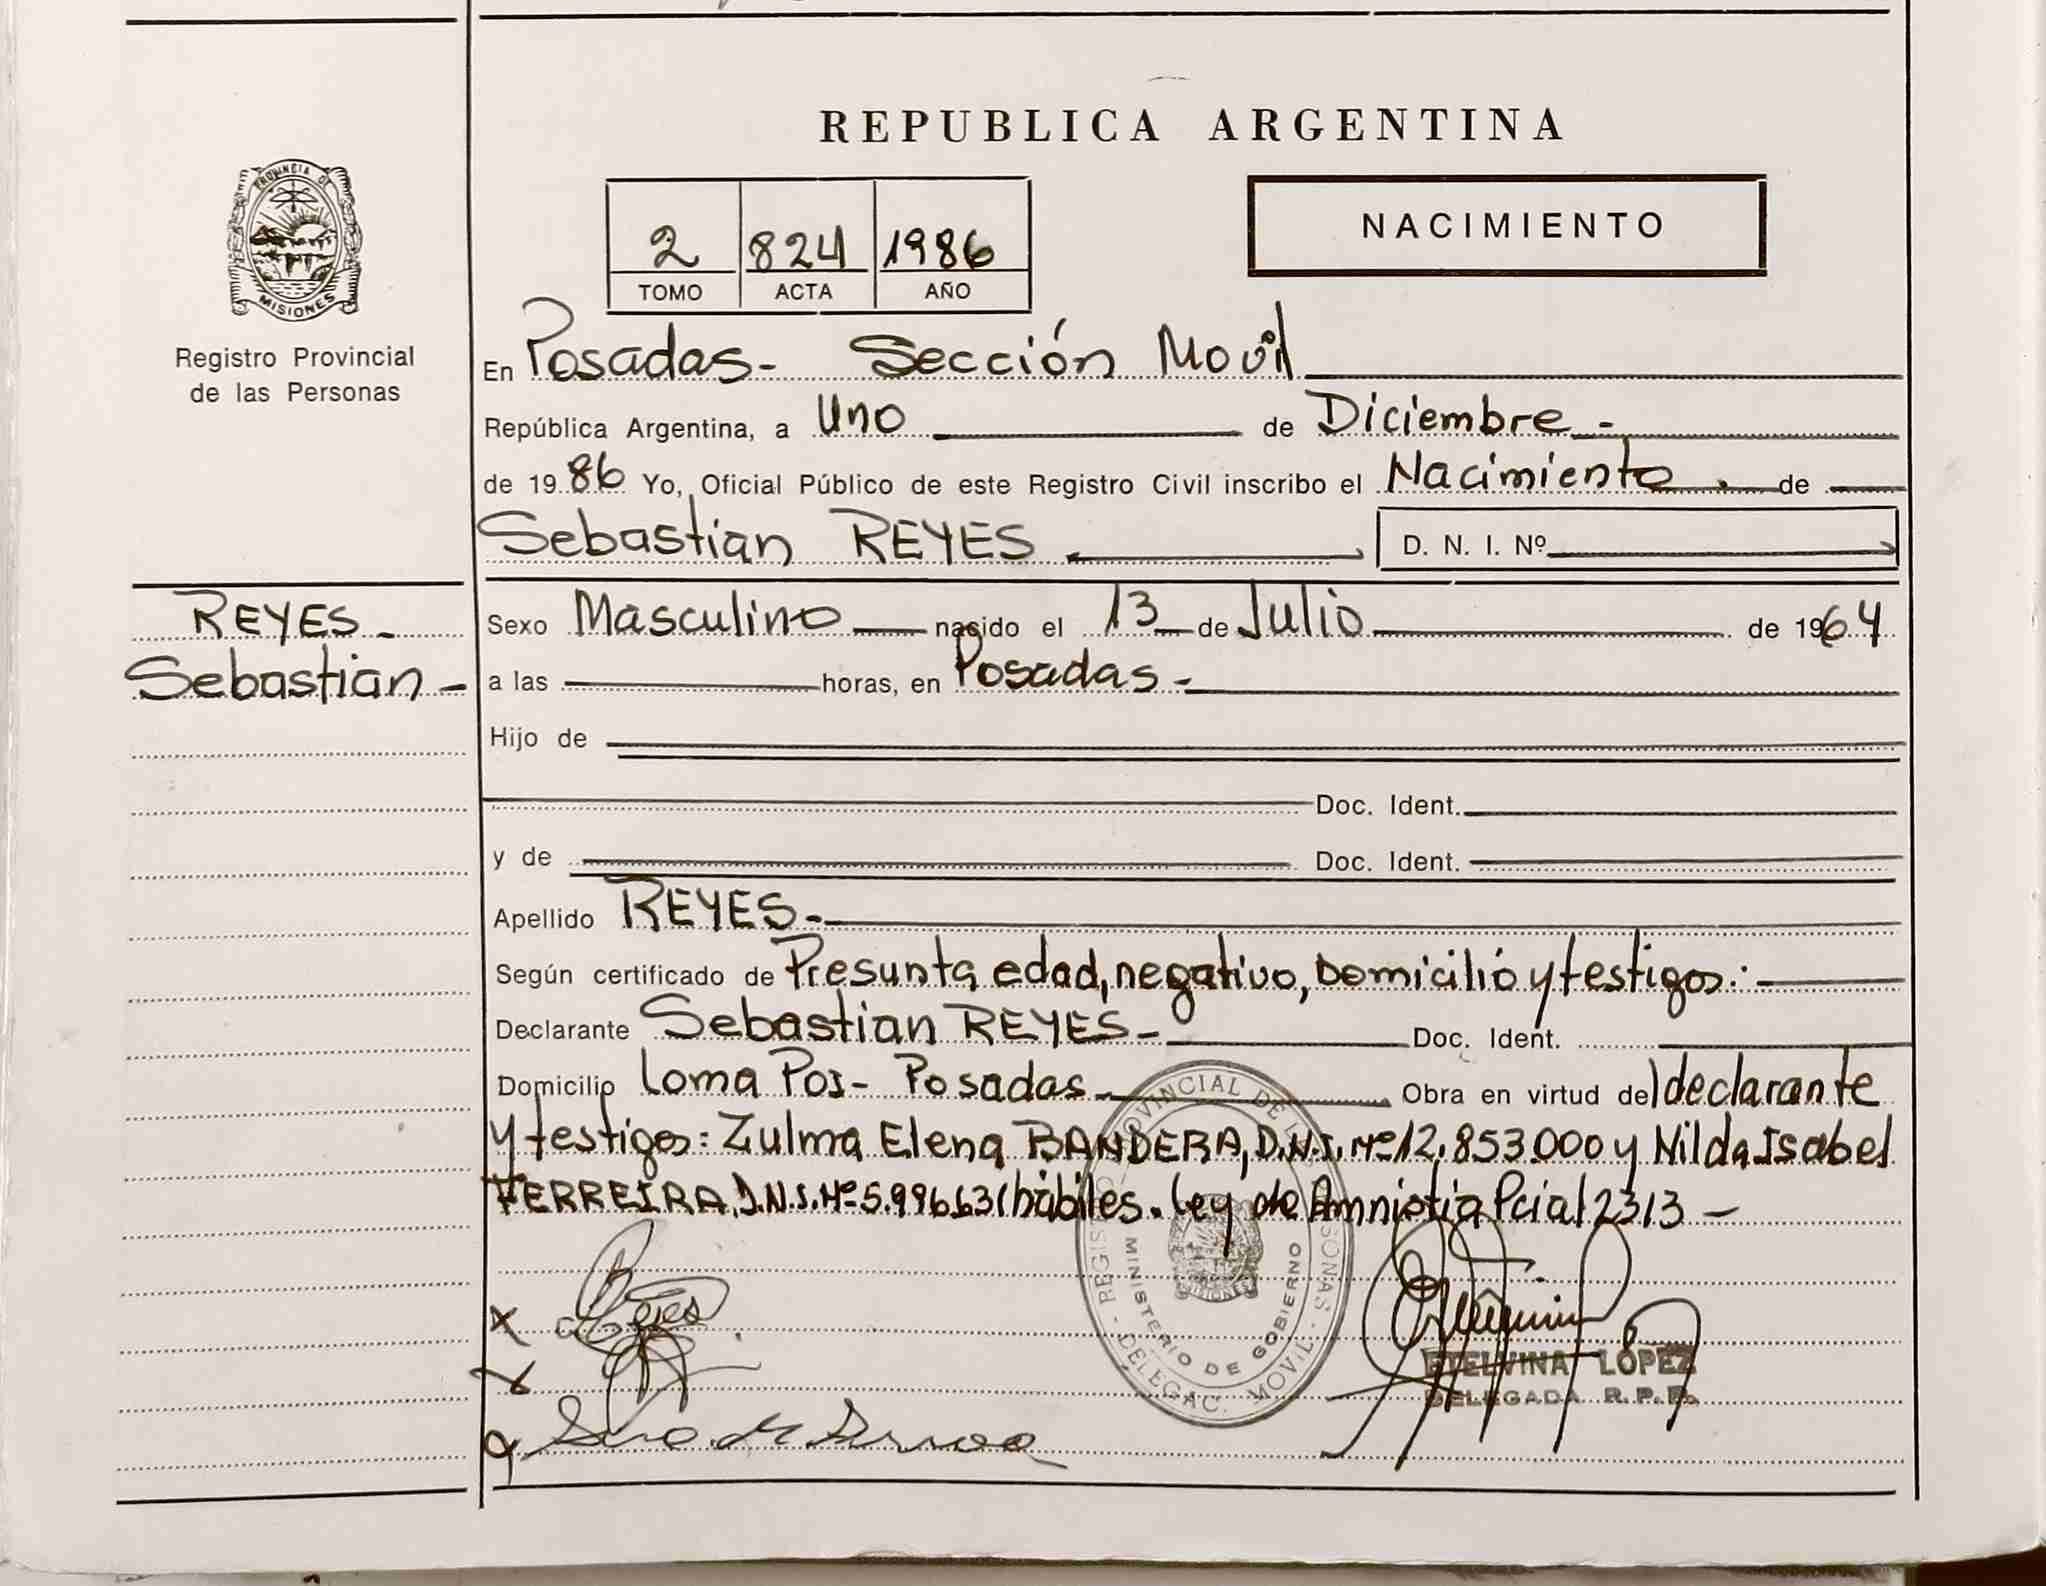 REPUBLICA ARGENTINA
PROVINCIA DE
MISIONES
Registro Provincial
de las Personas
2 824 1986
TOMO ACTA AÑO
NACIMIENTO
En Posadas- Sección Movil
República Argentina, a Uno de Diciembre -
de 1986 Yo, Oficial Público de este Registro Civil inscribo el Nacimiento . de
Sebastian REYES
D. N. I. Nº
REYES -
Sebastian -
Sexo Masculino nacido el 13 de Julio de 1964
a las horas, en Posadas -
Hijo de
Doc. Ident.
y de Doc. Ident.
Apellido REYES -
Según certificado de Presunta edad, negativo, Domicilio y testigos: -
Declarante Sebastian REYES - Doc. Ident.
Domicilio Loma Poi - Posadas - Obra en virtud del declarante
y testigos: Zulma Elena BANDERA, D.N.I. Nº 12.853.000 y Nilda Isabel
FERREIRA, D.N.I. Nº 5.996.631 hábiles. Ley de Amnistia Pcial 2313 -
REGISTRO PROVINCIAL DE LAS PERSONAS - DELEGAC. MOVIL -
MINISTERIO DE GOBIERNO
MISIONES
Reyes
ETELVINA LOPEZ
DELEGADA R. P. P.